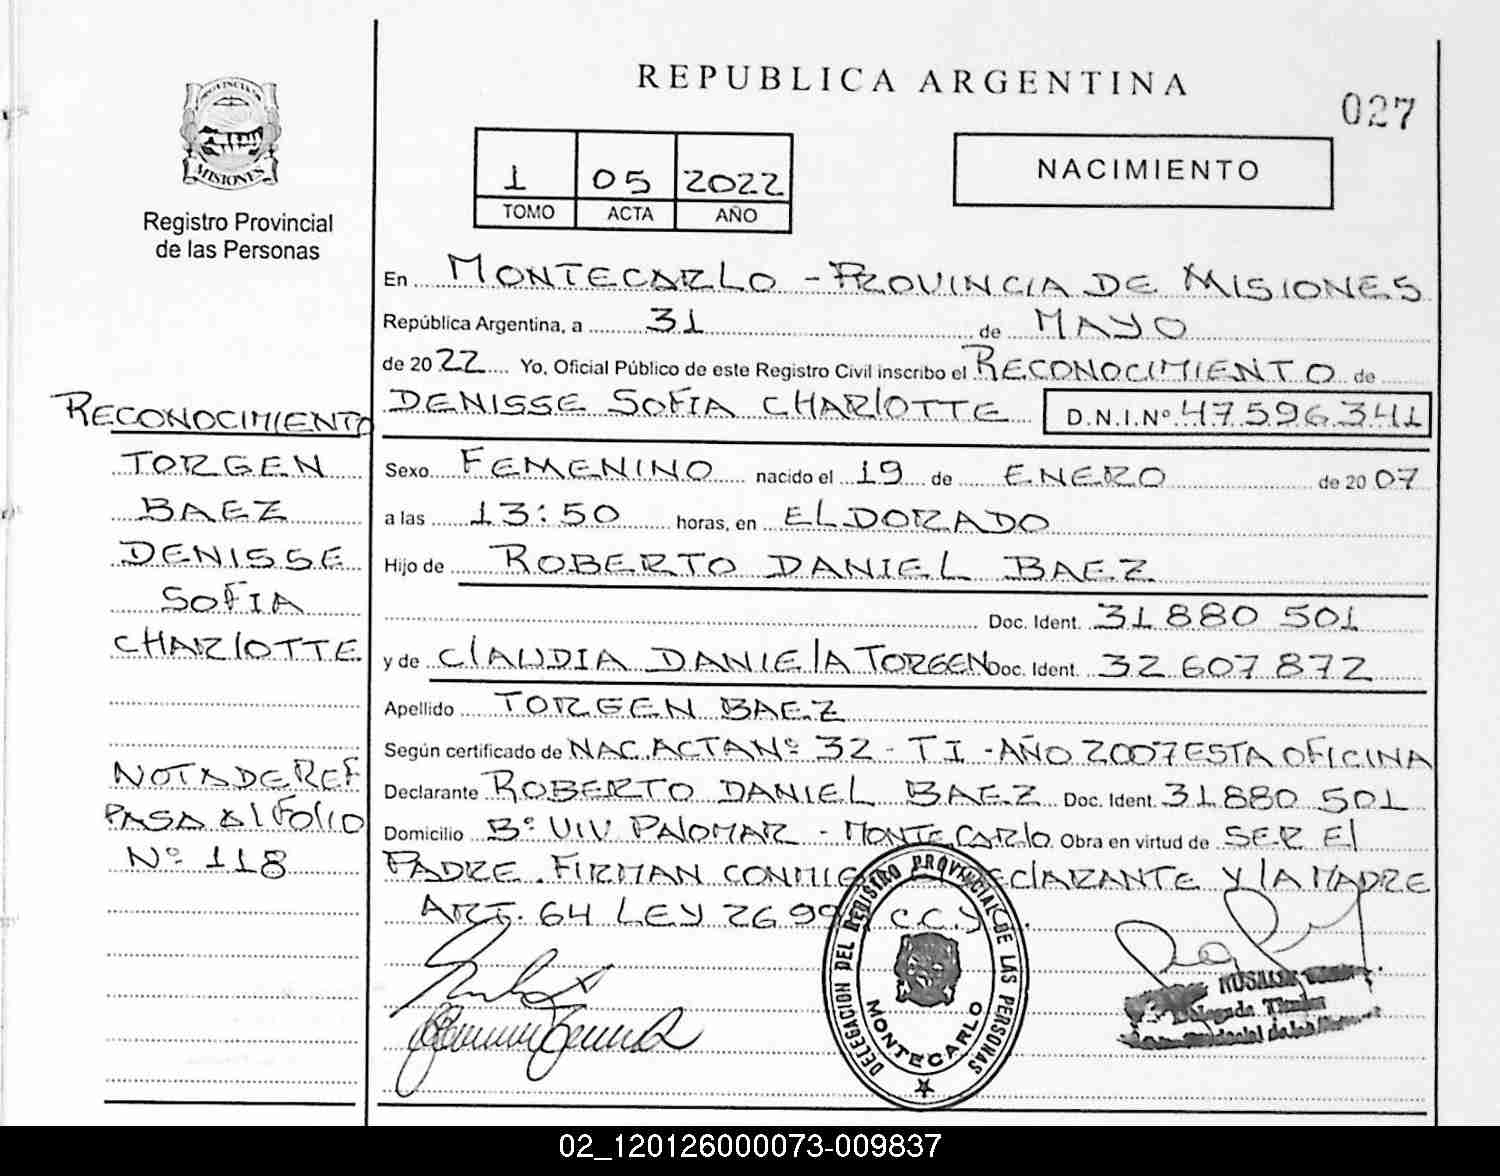 REPUBLICA ARGENTINA
027
PROVINCIA DE
MISIONES
Registro Provincial
de las Personas
1 05 2022
TOMO ACTA AÑO
NACIMIENTO
En MONTECARLO - PROVINCIA DE MISIONES
República Argentina, a 31 de MAYO
de 2022 Yo, Oficial Público de este Registro Civil inscribo el RECONOCIMIENTO de
DENISSE SOFIA CHARlOTTE D.N.I.Nº 47.596.341
Sexo FEMENINO nacido el 19 de ENERO de 2007
a las 13:50 horas, en ELDORADO
Hijo de ROBERTO DANIEL BAEZ
Doc. Ident. 31 880 501
y de ClAUDIA DANIElA TORGEN Doc. Ident. 32 607 872
Apellido TORGEN BAEZ
Según certificado de NAC. ACTA Nº 32 - T I - AÑO 2007 ESTA OFICINA
Declarante ROBERTO DANIEL BAEZ Doc. Ident. 31 880 501
Domicilio Bº VIV PAlOMAR - MONTECARlO Obra en virtud de SER El
PADRE. FIRMAN CONMIGO DEClARANTE Y lA MADRE
ART. 64 LEY 26.99 C.C.Y
RECONOCIMIENTO
TORGEN
BAEZ
DENISSE
SOFIA
CHARlOTTE
NOTA DE REF
PASA Al FOlIO
Nº 118
DELEGACION DEL REGISTRO PROVINCIAL DE LAS PERSONAS
MONTECARLO
Delegada Titular
02_120126000073-009837